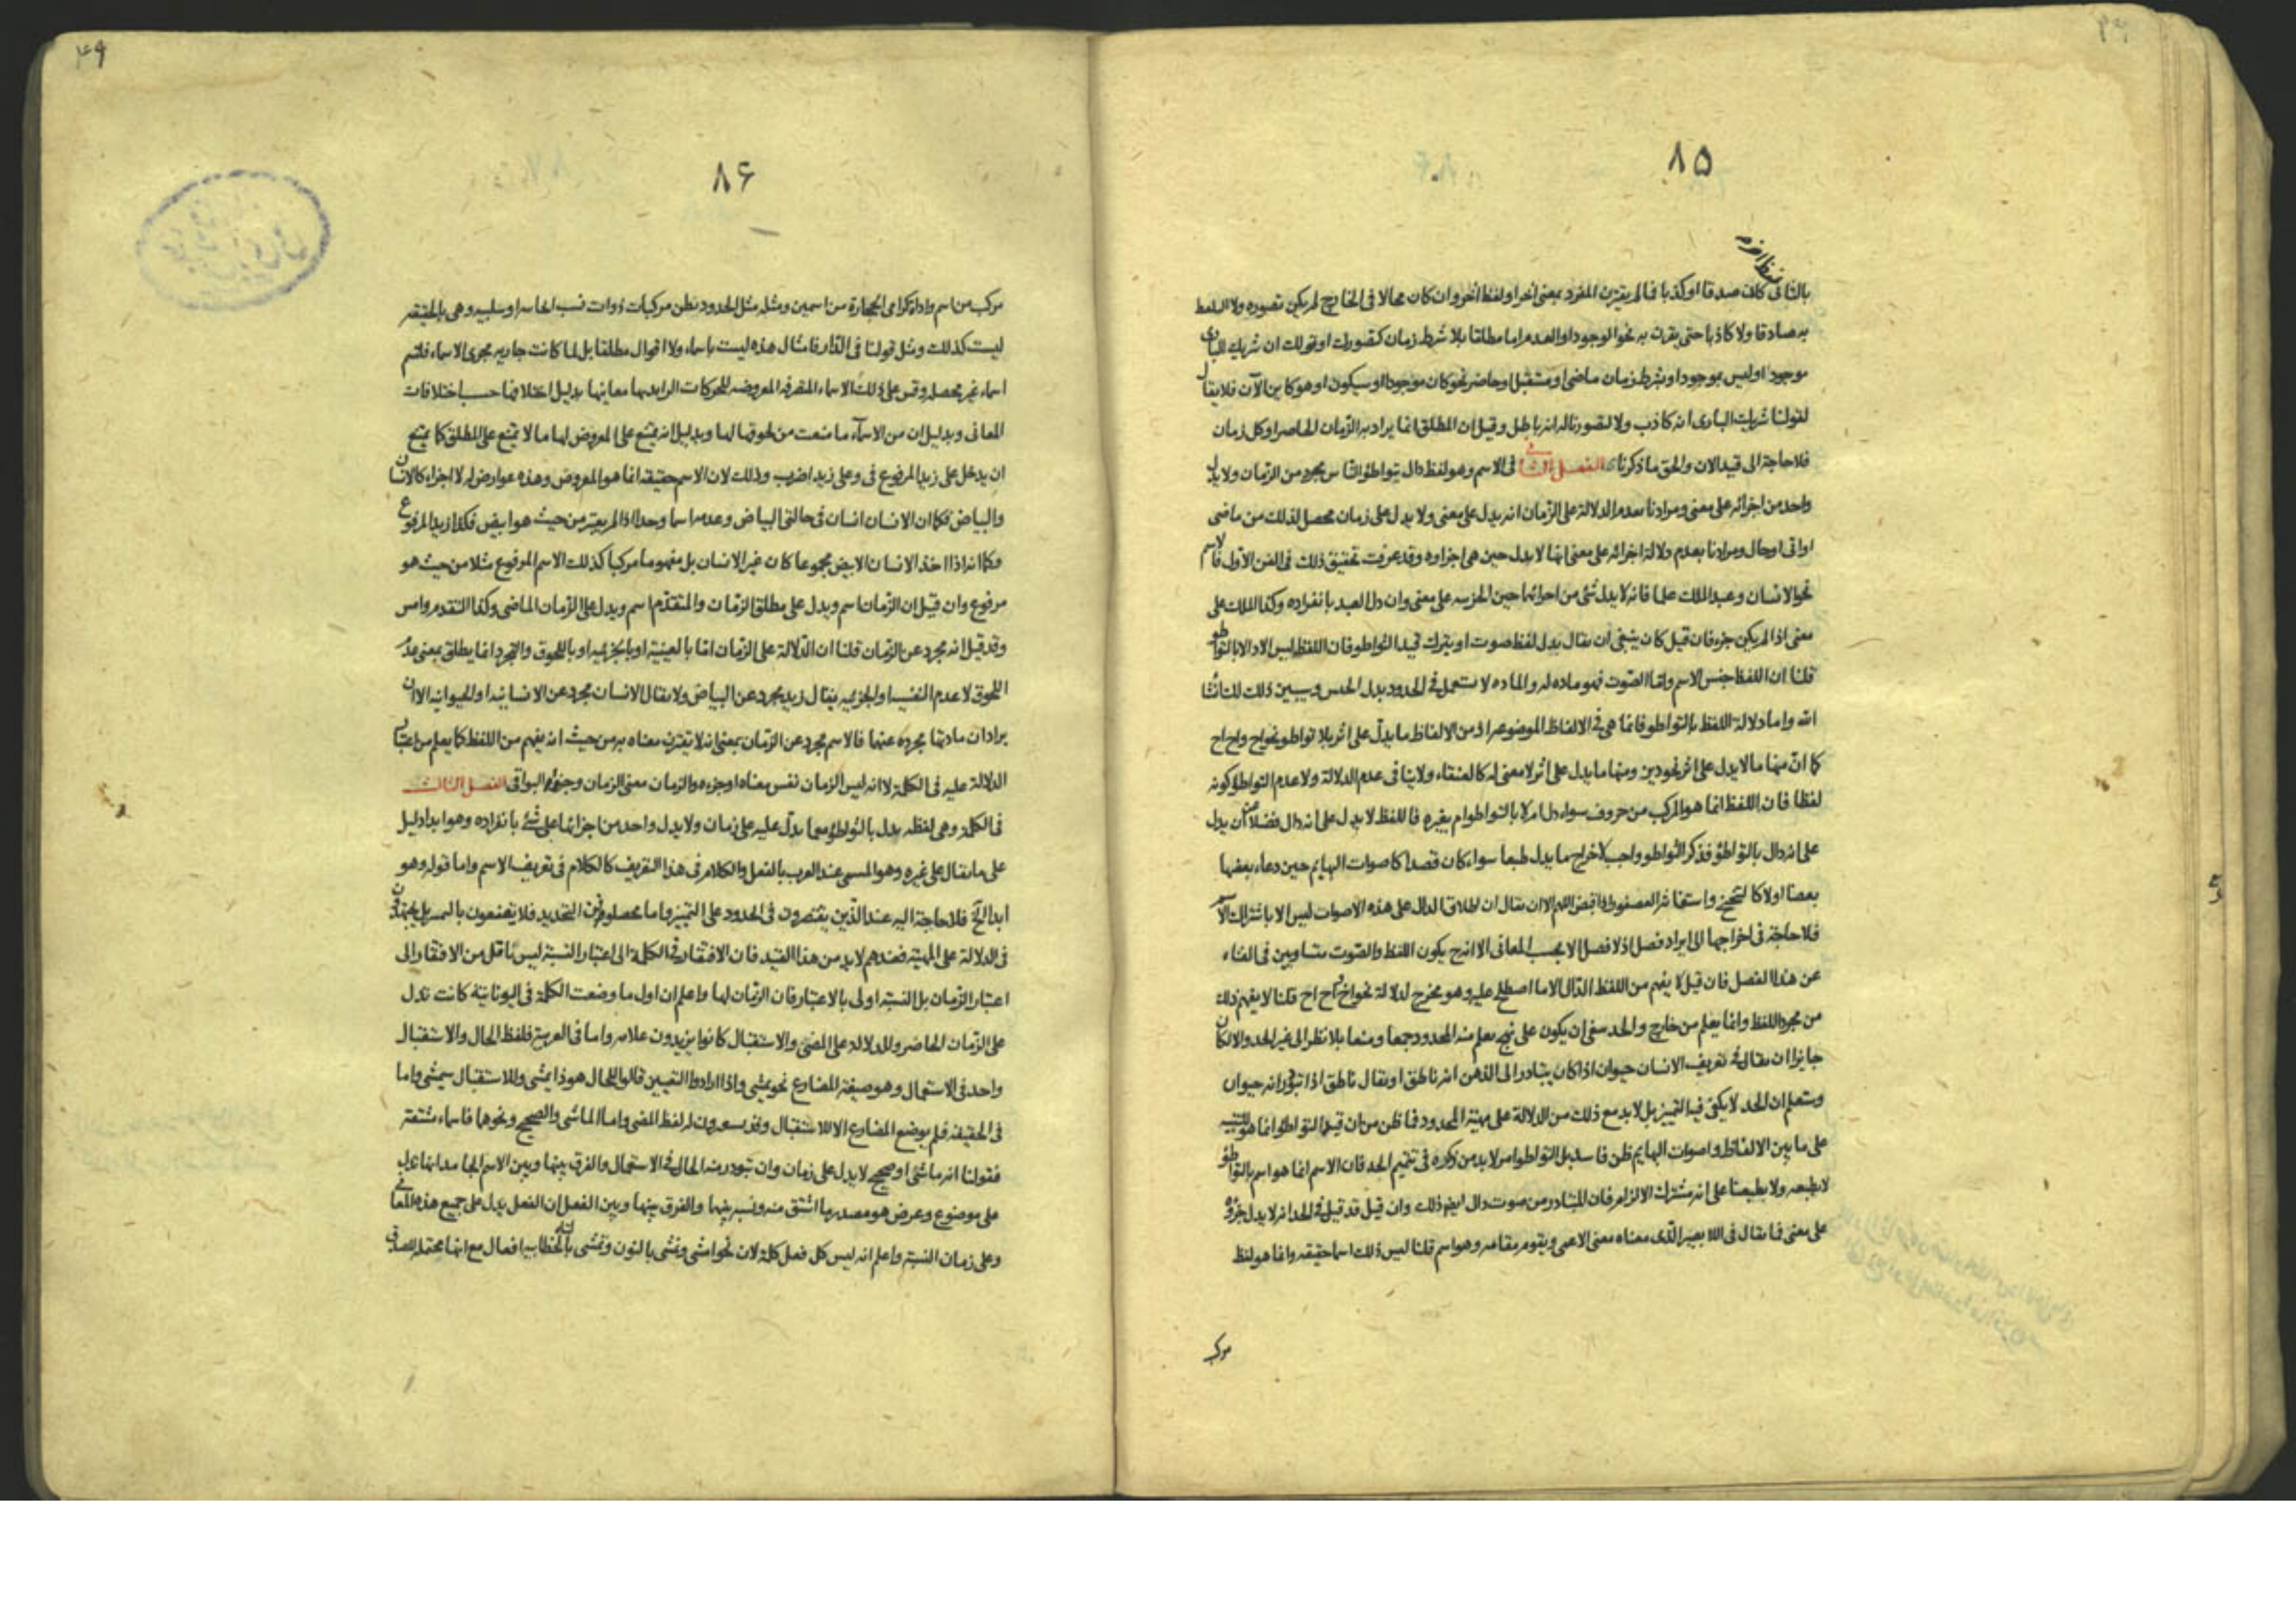 ۸۵
بالثانى كان صدقا او كذبا فما لم يقترن المفرد بمعنى اخر او لفظ اخر وان كان محالا فى الخارج لم يكن تصوره ولا اللفظ
به صادقا ولا كاذبا حتى يقرن به نحو الوجود او العدم اما مطلقا بلا شرط زمان كتصورك او قولك ان شريك البارى
موجود او ليس بموجود او بشرط زمان ماضى او مستقبل او حاضر نحو كان موجودا او سيكون او هو كاين الآن فلا يقال
لقولنا شريك البارى انه كاذب ولا لتصورنا له انه باطل وقيل ان المطلق انما يراد به الزمان الحاضر او كل زمان
فلا حاجة الى قيد الان والحق ما ذكرنا الفصل الثانى فى الاسم وهو لفظ دال بتواطؤ الناس مجرد من الزمان ولا يدل
واحد من اجزائه على معنى ومرادنا بعدم الدلالة على الزمان انه يدل على معنى ولا يدل على زمان محصل لذلك من ماضى
او اتى او حال ومرادنا بعدم دلالة اجزائه على معنى انها لا يدل حين هى اجزاوه وقد عرفت تحقيق ذلك فى الفن الاول فالاسم
نحو الانسان وعبد الملك علما فانه لا يدل شئ من اجزائها حين الجزئيه على معنى وان دل العبد بانفراده وكذا الملك على
معنى اذا لم يكن جزء فان قيل كان ينبغى ان يقال بدل لفظ صوت او يترك قيد التواطو فان اللفظ ليس الا دالا بالتواطو
قلنا ان اللفظ جنس الاسم واما الصوت فهو ماده له والماده لا يستعمل فى الحدود بدل الجنس وسيبين ذلك لك انشا
الله واما دلالة اللفظ بالتواطو فانما هى فى الالفاظ الموضوعه اذ من الالفاظ ما يدل على اثر بلا تواطو نحو اخ واح اح
كما ان منها ما لا يدل على اثر نحو ديز ومنها ما يدل على اثر لا معنى له كالعنقاء ولا ينافى عدم الدلالة ولا عدم التواطؤ كونه
لفظا فان اللفظ انما هو المركب من حروف سواء دل ام لا بالتواطو ام بغيره فاللفظ لا يدل على انه دال فضلا من ان يدل
على انه دال بالتواطؤ فذكر التواطو واجب لاخراج ما يدل طبعا سواء كان قصدا كاصوات البهايم حين دعاء بعضها
بعضا اولا كالتنحنح واستغاثه العصفور اذا قبض اللهم الا ان يقال ان اطلاق الدال على هذه الاصوات ليس الا باشتراك الاسم
فلا حاجة فى اخراجها الى ايراد فصل اذ لا فصل الا بحسب المعانى الا انه ح يكون اللفظ والصوت متساويين فى الغناء
عن هذا الفصل فان قيل لا يفهم من اللفظ الدال الا ما اصطلح عليه وهو مخرج لدلالة نحو اخ واح اح قلنا لا يفهم ذلك
من مجرد اللفظ وانما يعلم من خارج والحد ينبغى ان يكون على نهج يعلم منه المحدود جمعا ومنعا بلا نظر الى غير الحد والا لكان
جايزا ان يقال فى تعريف الانسان حيوان اذا كان يتبادر الى الذهن انه ناطق او يقال ناطق اذا تبودر انه حيوان
وستعلم ان الحد لا يكفى فيه التمييز بل لا بد مع ذلك من الدلالة على مهية المحدود فما ظن من ان قيد التواطؤ انما هو للتنبيه
على ما بين الالفاظ واصوات البهايم ظن فاسد بل التواطو امر لا بد من ذكره فى تتميم الحد فان الاسم انما هو اسم بالتواطو
لا بطبعه ولا بطبعنا على انه مشترك الالزام فان المتبادر من صوت دال ايضا ذلك وان قيل قد قيل فى الحد انه لا يدل جزؤه
على معنى فما يقال فى اللا بصير الذى معناه معنى الاعمى ويقوم مقامه وهو اسم قلنا ليس ذلك اسما حقيقه وانما هو لفظ
مركب
۴۹
۸۶
مركب من اسم واداة كرامى الحجارة من اسمين ومثله مثل الحدود تظن مركبات ذوات نسب ايجابيه او سلبيه وهى بالحقيقه
ليست كذلك ومثل قولنا فى الدار فامثال هذه ليست باسماء ولا اقوال مطلقا بل لما كانت جاريه مجرى الاسماء فلتسم
اسماء غير محصله وقس على ذلك الاسماء المتصرفه المعروضه للحركات الزايد بها معانيها بدليل اختلافها حسب اختلافات
المعانى وبدليل ان من الاسماء ما منعت من لحوقها لها وبدليل انه يمتنع على المعروض لها ما لا يمتنع على المطلق كما يمتنع
ان يدخل على زيد المرفوع فى وعلى زيد اضرب وذلك لان الاسم حقيقه انما هو المعروض وهذه عوارض له لا اجزاء كالانسان
والبياض فكما ان الانسان انسان فى حالتى البياض وعدمه اسما وحدا اذا لم يعتبر من حيث هو ابيض فكذا زيد المرفوع
وكما انه اذا اخذ الانسان الابيض مجموعا كان غير الانسان بل مفهوما مركبا كذلك الاسم المرفوع مثلا من حيث هو
مرفوع وان قيل ان الزمان اسم ويدل على مطلق الزمان والمتقدم اسم ويدل على الزمان الماضى وكذا التقدم وامس
وقد قيل انه مجرد عن الزمان قلنا ان الدلالة على الزمان اما بالعينية او بالجزئيه او باللحوق والتجرد انما يطلق بمعنى عدم
اللحوق لا عدم النفسيه او الجزئيه يقال زيد مجرد عن البياض ولا يقال الانسان مجرد عن الانسانيه او الحيوانيه الا ان
يراد ان مادتها مجرده عنها فالاسم مجرد عن الزمان بمعنى انه لا يقترن معناه به من حيث انه يفهم من اللفظ كما يعلم من اعتبار
الدلالة عليه فى الكلمة لا انه ليس الزمان نفس معناه او جزءه والزمان معنى الزمان وجزؤ البواقى الفصل الثالث
فى الكلمة وهى لفظه يدل بالتواطو مع ما يدل عليه على زمان ولا يدل واحد من اجزائها على شئ بانفراده وهو ابدا دليل
على ما يقال على غيره وهو المسمى عند العرب بالفعل والكلام فى هذا التعريف كالكلام فى تعريف الاسم واما قوله وهو
ابدا الخ فلا حاجة اليه عند الذين يقتصرون فى الحدود على التمييز واما محصلو فن التحديد فلا يقنعون بالتمييز بل يجتهدون
فى الدلالة على المهية فعندهم لا بد من هذا القيد فان الافتقار فى الكلمة الى اعتبار النسبة ليس باقل من الافتقار الى
اعتبار الزمان بل النسبة اولى بالاعتبار فان الزمان لها واعلم ان اول ما وضعت الكلمة فى اليونانية كانت تدل
على الزمان الحاضر وللدلالة على المضى والاستقبال كانوا يزيدون علامه واما فى العربية فلفظ الحال والاستقبال
واحد فى الاستعمال وهو صيغة المضارع نحو يمشى واذا ارادوا التعيين قالوا للحال هو ذا يمشى وللاستقبال سيمشى واما
فى الحقيقه فلم يوضع المضارع الا للاستقبال وقد يستعيرون له لفظ المضى واما الماشى والصحيح ونحوهما فاسماء مشتقة
فقولنا انه ماشى او صحيح لا يدل على زمان وان تبودر منه الحال فى الاستعمال والفرق بينها وبين الاسم الجامد انها تدل
على موضوع وعرض هو مصدر ما اشتق منه ونسبة بينهما والفرق بينها وبين الفعل ان الفعل يدل على جميع هذه المعانى
وعلى زمان النسبة واعلم انه ليس كل فعل كلمة لان نحو امشى ونمشى بالنون وتمشى بالتاء الخطابيه افعال مع انها محتملة للصدق